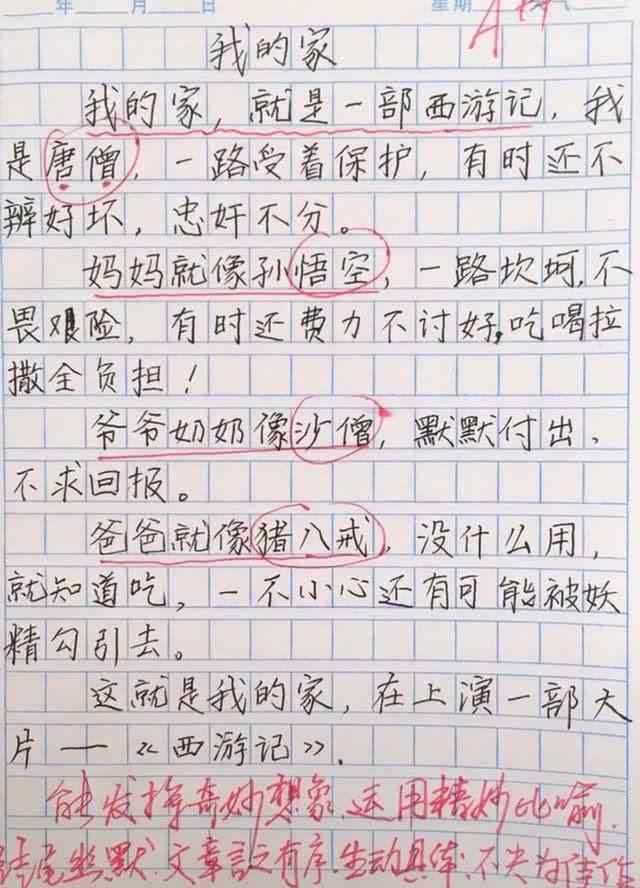 年 月 日 星期
A++
我的家
我的家，就是一部西游记，我
是唐僧，一路受着保护，有时还不
辨好坏，忠奸不分。
妈妈就像孙悟空，一路坎坷，不
畏艰险，有时还费力不讨好，吃喝拉
撒全负担！
爷爷奶奶像沙僧，默默付出、
不求回报。
爸爸就像猪八戒，没什么用，
就知道吃，一不小心还有可能被妖
精勾引去。
这就是我的家，在上演一部大
片——《西游记》.
能发挥奇妙想象，运用精妙比喻，
结尾幽默.文章言之有序.生动具体，不失为佳作